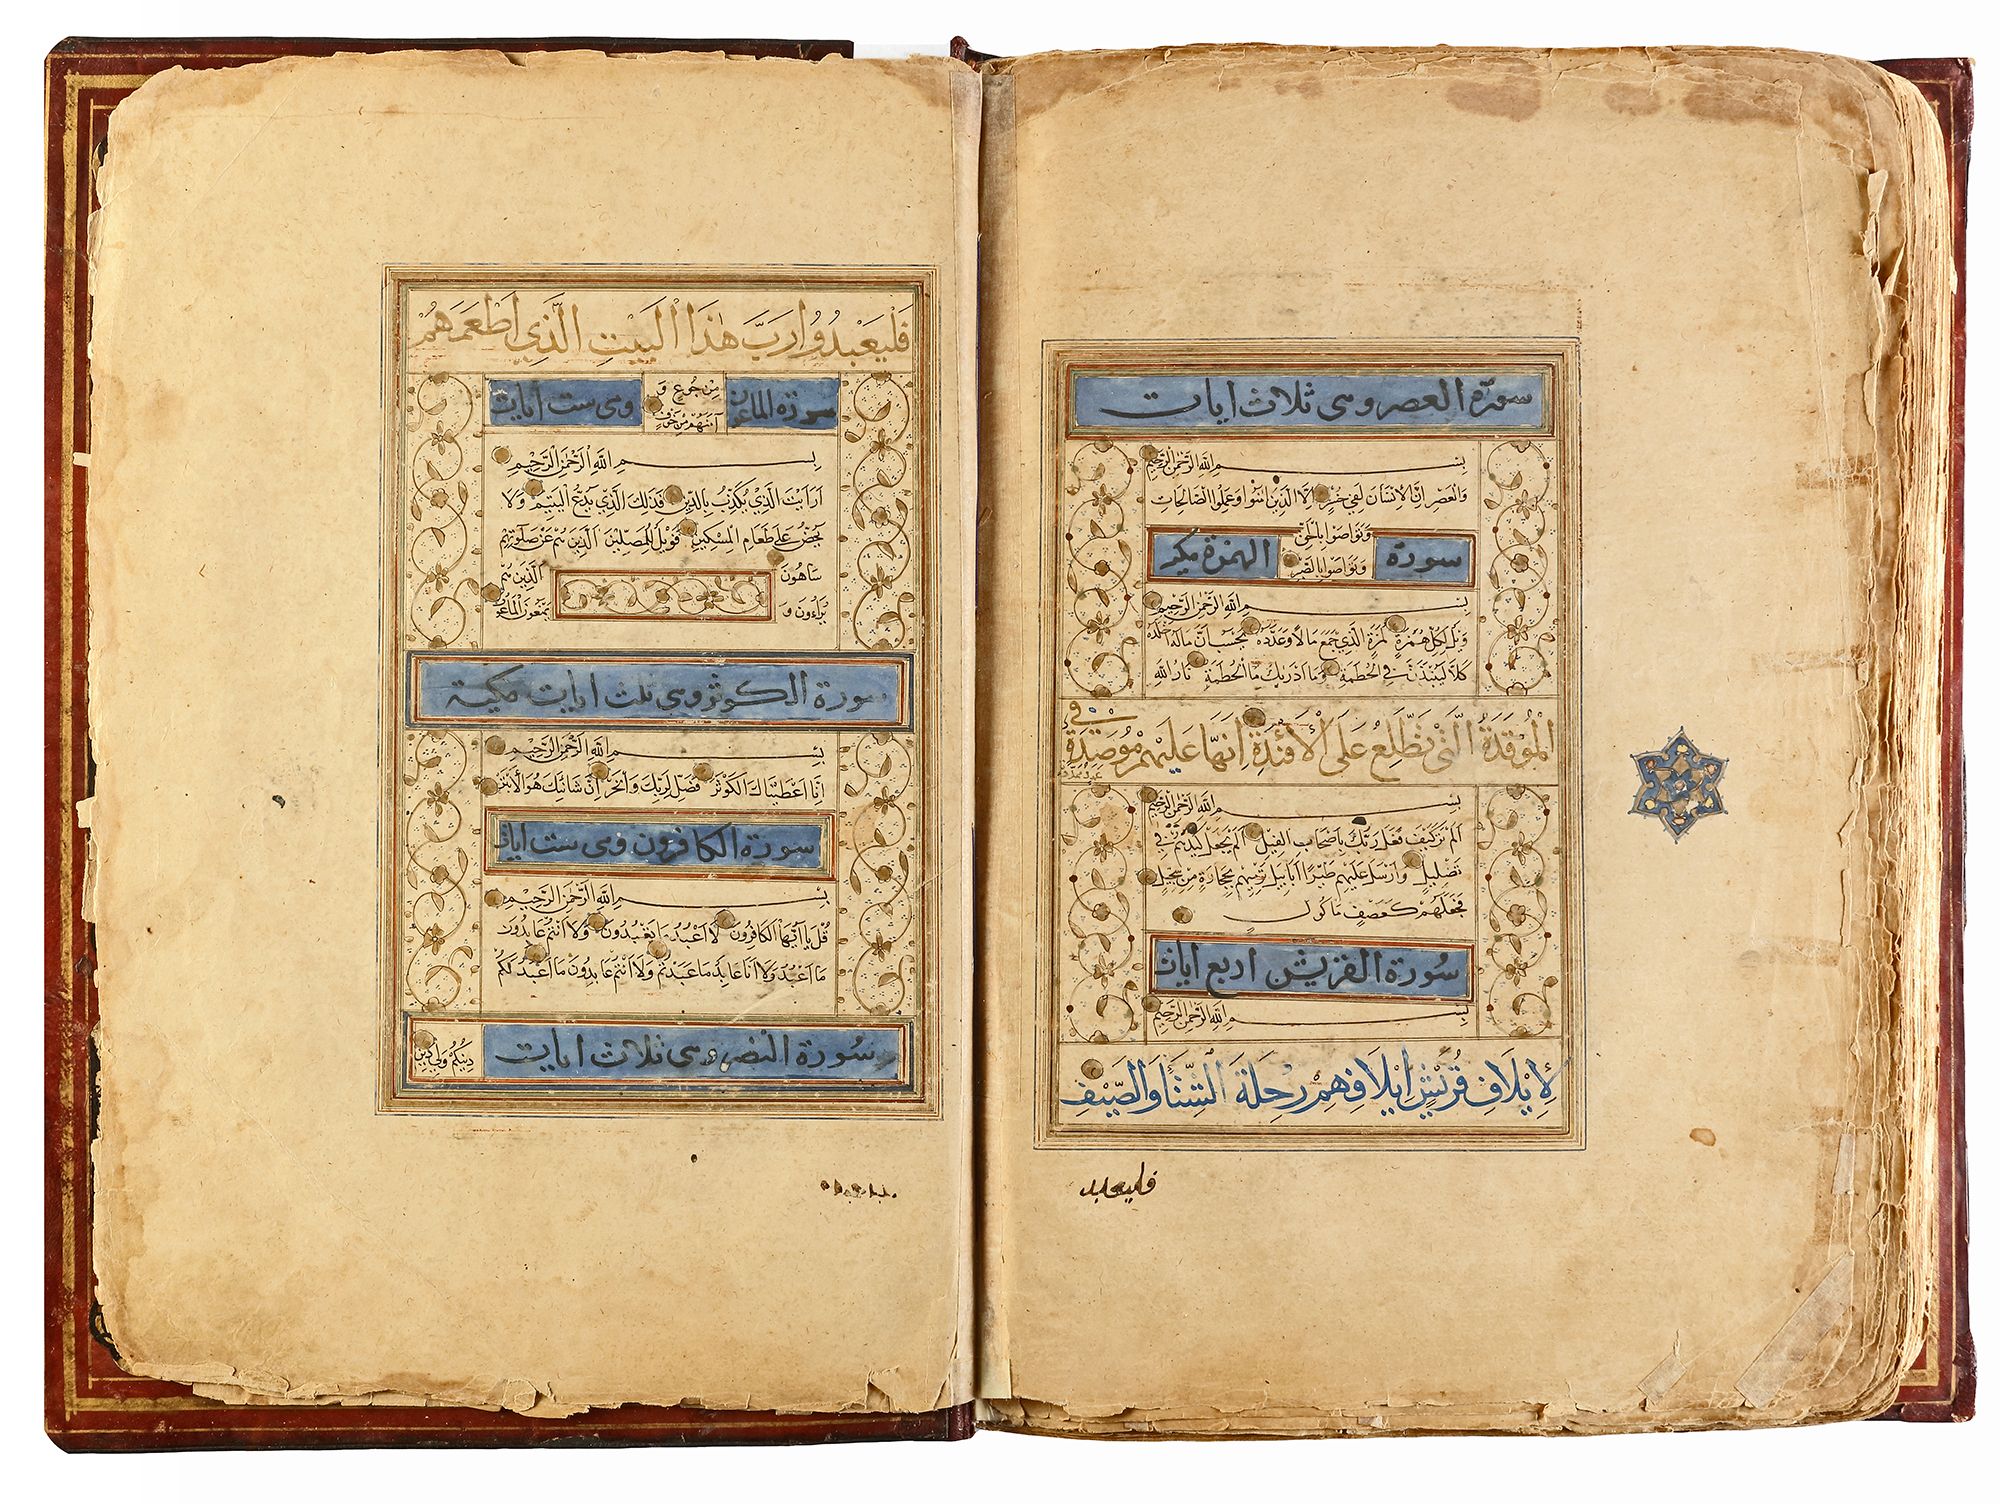 سورة العصر وهي ثلاث ايات
بِسْمِ اللَّهِ الرَّحْمٰنِ الرَّحِيمِ
وَالعَصرِ اِنَّ الاِنْسَانَ لَفِي خُسْرٍ اِلَّا الَّذِينَ اٰمَنُوا وَعَمِلُوا الصَّالِحَاتِ
وَتَوَاصَوا بِالحَقِّ
سورة الهمزة مكية
وَتَوَاصَوا بِالصَّبْرِ
بِسْمِ اللَّهِ الرَّحْمٰنِ الرَّحِيمِ
وَيْلٌ لِكُلِّ هُمَزَةٍ لُمَزَةٍ الَّذِي جَمَعَ مَالًا وَعَدَّدَهُ يَحْسَبُ اَنَّ مَالَهُ اَخْلَدَهُ
كَلَّا لَيُنْبَذَنَّ فِي الْحُطَمَةِ وَمَا اَدْرٰيكَ مَا الْحُطَمَةُ نَارُ اللَّهِ
الْمُوْقَدَةُ الَّتِي تَطَّلِعُ عَلَى الْأَفْئِدَةِ اِنَّهَا عَلَيْهِمْ مُوصَدَةٌ فِي
عَمَدٍ مُمَدَّدَةٍ
بِسْمِ اللَّهِ الرَّحْمٰنِ الرَّحِيمِ
اَلَمْ تَرَ كَيْفَ فَعَلَ رَبُّكَ بِاَصْحَابِ الْفِيلِ اَلَمْ يَجْعَلْ كَيْدَهُمْ فِي
تَضْلِيلٍ وَاَرْسَلَ عَلَيْهِمْ طَيْرًا اَبَابِيلَ تَرْمِيهِمْ بِحِجَارَةٍ مِنْ سِجِّيلٍ
فَجَعَلَهُمْ كَعَصْفٍ مَاْكُولٍ
سُورة القريش اربع ايات
بِسْمِ اللَّهِ الرَّحْمٰنِ الرَّحِيمِ
لِاِيْلَافِ قُرَيْشٍ اِيْلَافِهِمْ رِحْلَةَ الشِّتَاءِ وَالصَّيْفِ
فليعبد
فَلْيَعْبُدُوا رَبَّ هٰذَا الْبَيْتِ الَّذِي اَطْعَمَهُمْ
مِنْ جُوعٍ وَ
سورة الماعون وهي ست ايات
اٰمَنَهُمْ مِنْ خَوْفٍ
بِسْمِ اللَّهِ الرَّحْمٰنِ الرَّحِيْمِ
اَرَاَيْتَ الَّذِي يُكَذِّبُ بِالدِّيْنِ فَذٰلِكَ الَّذِي يَدُعُّ الْيَتِيْمَ وَلَا
يَحُضُّ عَلٰى طَعَامِ الْمِسْكِيْنِ فَوَيْلٌ لِلْمُصَلِّيْنَ الَّذِيْنَ هُمْ عَنْ صَلٰوتِهِمْ
سَاهُونَ الَّذِيْنَ هُمْ
يُرَاءُونَ وَ يَمْنَعُونَ الْمَاعُونَ
سورة الكوثر وهي ثلث ايات مكية
بِسْمِ اللَّهِ الرَّحْمٰنِ الرَّحِيْمِ
اِنَّا اَعْطَيْنَاكَ الْكَوْثَرَ فَصَلِّ لِرَبِّكَ وَانْحَرْ اِنَّ شَانِئَكَ هُوَ الْاَبْتَرُ
سورة الكافرون وهي ست ايات
بِسْمِ اللَّهِ الرَّحْمٰنِ الرَّحِيْمِ
قُلْ يَا اَيُّهَا الْكَافِرُونَ لَا اَعْبُدُ مَا تَعْبُدُونَ وَلَا اَنْتُمْ عَابِدُونَ
مَا اَعْبُدُ وَلَا اَنَا عَابِدٌ مَا عَبَدْتُمْ وَلَا اَنْتُمْ عَابِدُونَ مَا اَعْبُدُ لَكُمْ
دِيْنُكُمْ وَلِيَ دِيْنِ
سورة النصر وهي ثلاث ايات